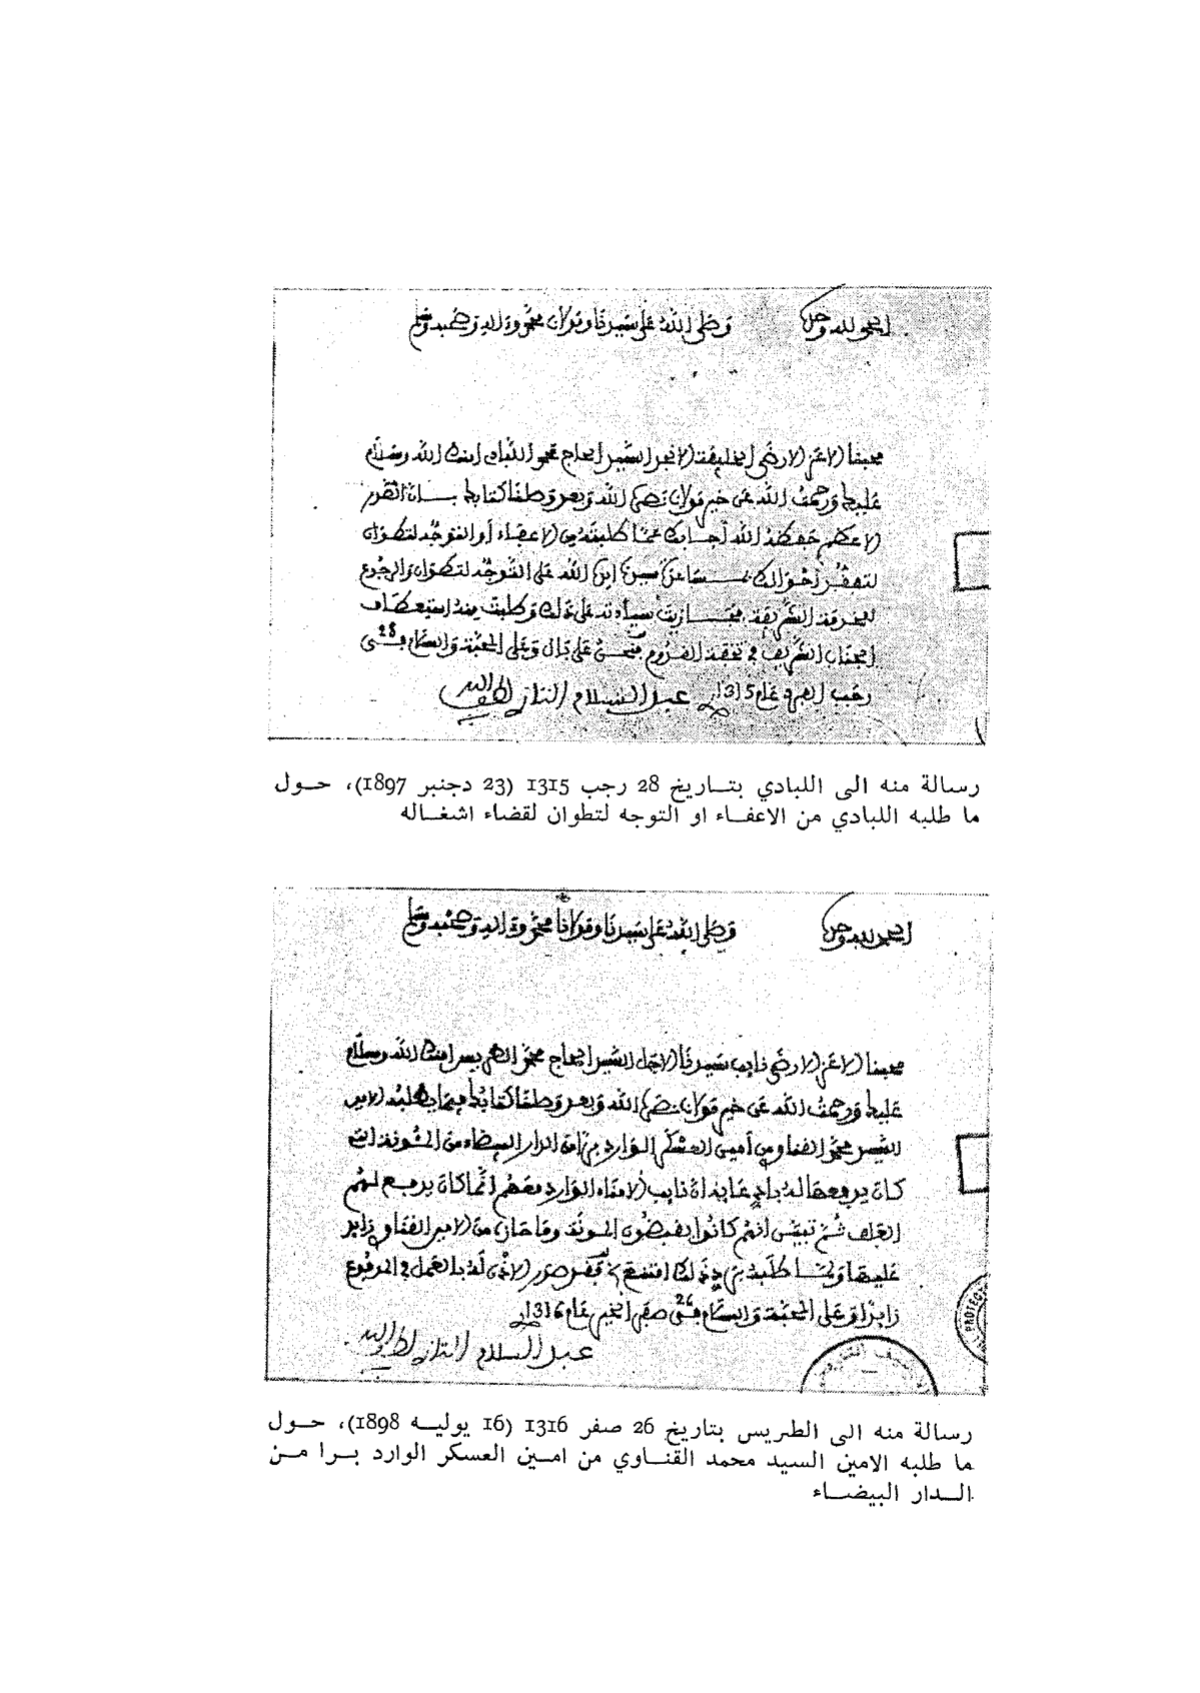 الحمد لله وحده
وصلى الله على سيدنا ومولانا محمد وءاله وصحبه وسلم
محبنا الاعز الارضى الخليفة الانجد السيد الحاج محمد اللبادي امنك الله وسلام
عليك ورحمت الله عن خير مولانا نصره الله وبعد وصلنا كتابك
الاعظم حفظه الله اجابك عما طلبته من الاعفاء أو التوجه لتطوان
لتفقد احوالك سيدنا ايده الله على التوجه لتطوان والرجوع
للخدمة الشريفة على ذلك وطلبت منه استعطاف
الجناب الشريف على بال وعلى المحبة والسلام في 28
رجب الفرد عام 1315 عبد السلام التازي لطف الله به
رسالة منه الى اللبادي بتاريخ 28 رجب 1315 (23 دجنبر 1897)، حول
ما طلبه اللبادي من الاعفاء او التوجه لتطوان لقضاء اشغاله
الحمد لله وحده
وصلى الله على سيدنا ومولانا محمد وءاله وصحبه وسلم
محبنا الاعز الارضى نايب سيدنا الاجل السيد الحاج محمد الطريس امنك الله وسلام
عليك ورحمت الله عن خير مولانا نصره الله وبعد وصلنا كتابك فيما طلبه الامين
السيد محمد القناوي من أمين العسكر الوارد برا من الدار البيضاء من المئونة التي
كان يدفعها له نايب الامناء الوارد معهم انما كان يدفع لهم
العلف ثم تبين انهم كانوا يقبضون المونة وما حازه من الامين القناوي زايد
عليها ولما طلبه فقد صدر الاذن له بالعمل في المدفوع
زايدا وعلى المحبة والسلام في 26 صفر الخير عام 1316
عبد السلام التازي لطف الله به
PROTEC
رسالة منه الى الطريس بتاريخ 26 صفر 1316 (16 يوليه 1898)، حول
ما طلبه الامين السيد محمد القناوي من امين العسكر الوارد برا من
الدار البيضاء